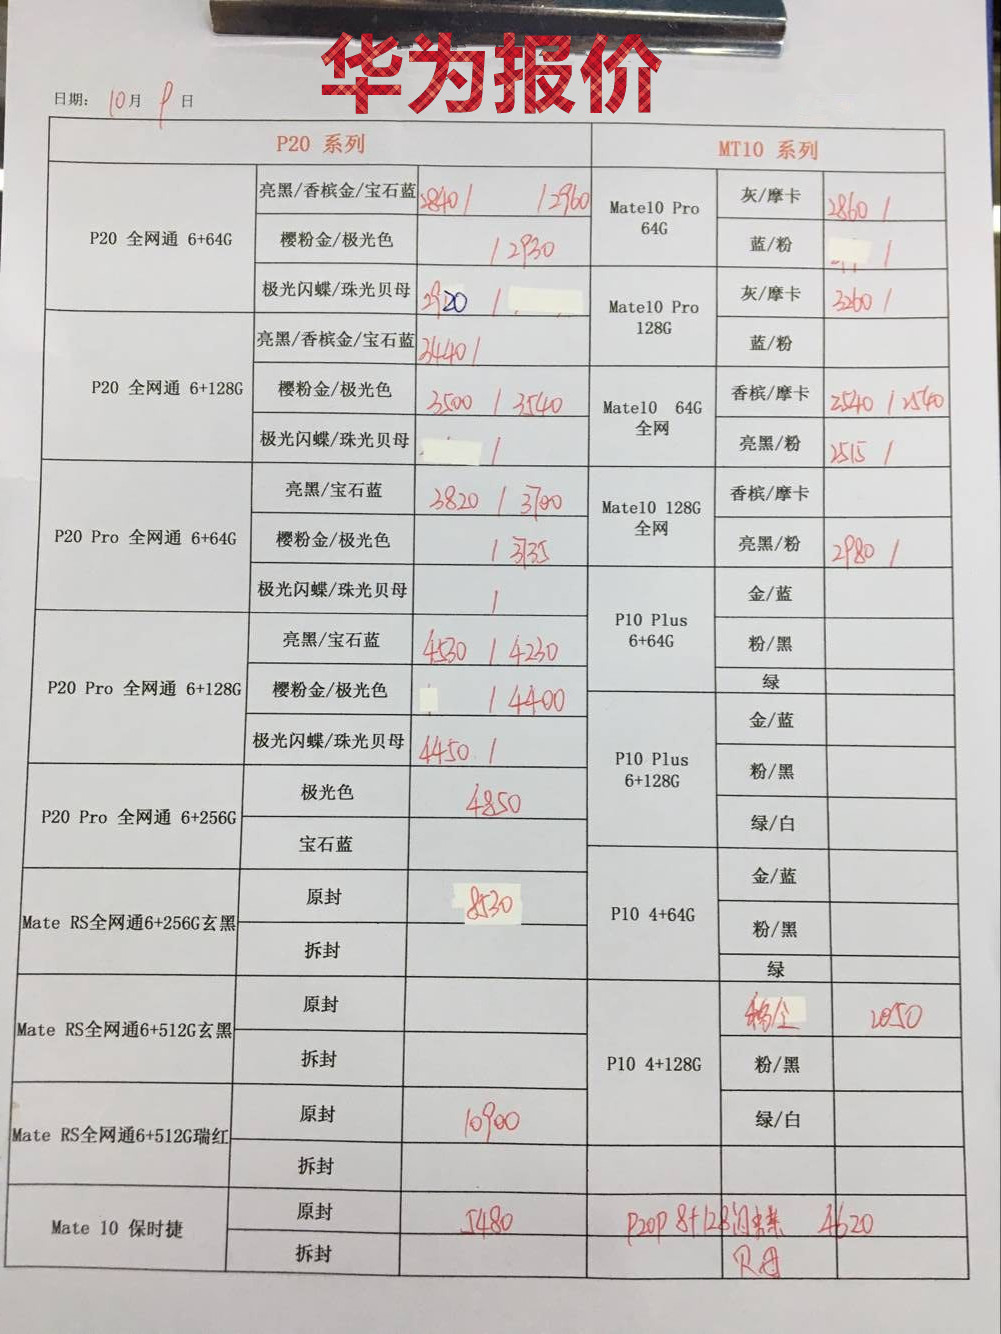 华为报价
日期： 10 月 9 日
P20 系列
MT10 系列
P20 全网通 6+64G
亮黑/香槟金/宝石蓝 2840 / / 2960
樱粉金/极光色 / 2930
极光闪蝶/珠光贝母 2920 /
P20 全网通 6+128G
亮黑/香槟金/宝石蓝 3440 /
樱粉金/极光色 3500 / 3540
极光闪蝶/珠光贝母 /
P20 Pro 全网通 6+64G
亮黑/宝石蓝 3820 / 3700
樱粉金/极光色 / 3735
极光闪蝶/珠光贝母 /
P20 Pro 全网通 6+128G
亮黑/宝石蓝 4530 / 4230
樱粉金/极光色 / 4400
极光闪蝶/珠光贝母 4450 /
P20 Pro 全网通 6+256G
极光色 4850
宝石蓝
Mate RS全网通6+256G玄黑
原封 8530
拆封
Mate RS全网通6+512G玄黑
原封
拆封
Mate RS全网通6+512G瑞红
原封 10900
拆封
Mate 10 保时捷
原封 5480
拆封
Mate10 Pro
64G
灰/摩卡 2860 /
蓝/粉 /
Mate10 Pro
128G
灰/摩卡 3260 /
蓝/粉
Mate10 64G
全网
香槟/摩卡 2540 / 2540
亮黑/粉 2515 /
Mate10 128G
全网
香槟/摩卡
亮黑/粉 2980 /
P10 Plus
6+64G
金/蓝
粉/黑
绿
P10 Plus
6+128G
金/蓝
粉/黑
绿/白
P10 4+64G
金/蓝
粉/黑
绿
P10 4+128G
2050
粉/黑
绿/白
P20P 8+128闪蝶 4620
贝母